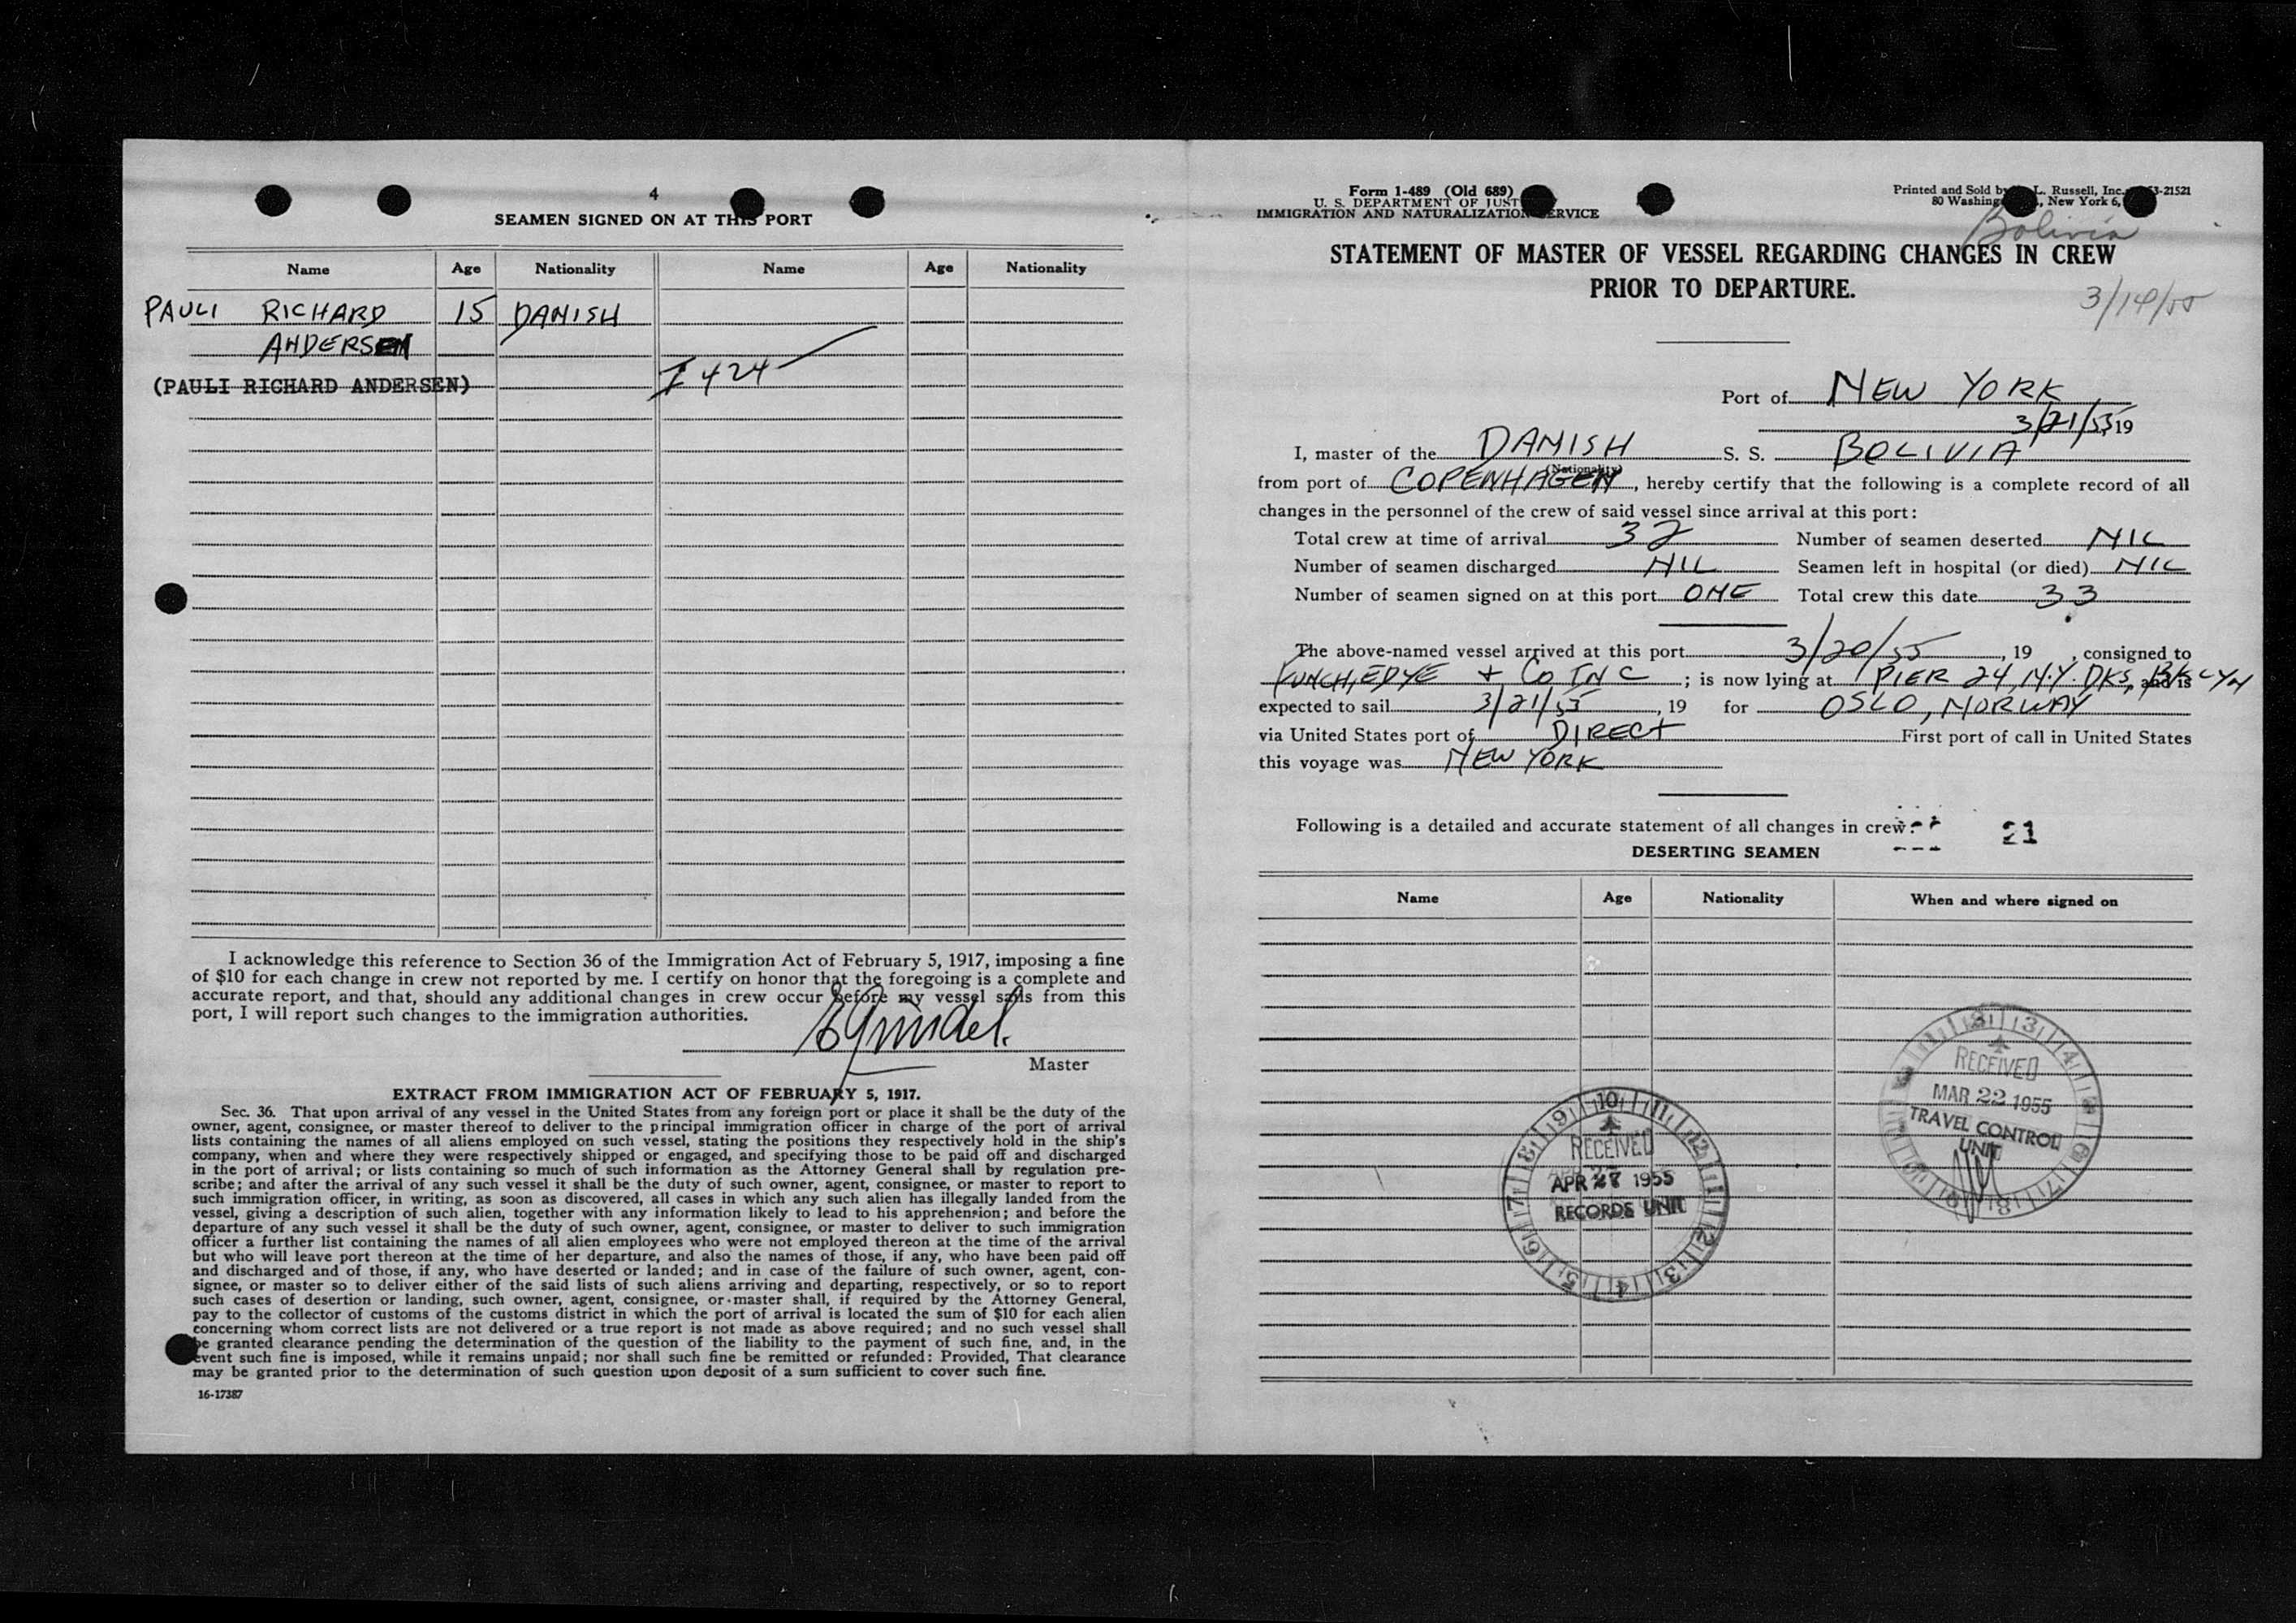 4
SEAMEN SIGNED ON AT THIS PORT
Name Age Nationality Name Age Nationality
PAULI RICHARD 15 DANISH
ANDERSEN
I 424
(PAULI RICHARD ANDERSEN)
I acknowledge this reference to Section 36 of the Immigration Act of February 5, 1917, imposing a fine
of $10 for each change in crew not reported by me. I certify on honor that the foregoing is a complete and
accurate report, and that, should any additional changes in crew occur before my vessel sails from this
port, I will report such changes to the immigration authorities.
Master
EXTRACT FROM IMMIGRATION ACT OF FEBRUARY 5, 1917.
Sec. 36. That upon arrival of any vessel in the United States from any foreign port or place it shall be the duty of the
owner, agent, consignee, or master thereof to deliver to the principal immigration officer in charge of the port of arrival
lists containing the names of all aliens employed on such vessel, stating the positions they respectively hold in the ship's
company, when and where they were respectively shipped or engaged, and specifying those to be paid off and discharged
in the port of arrival; or lists containing so much of such information as the Attorney General shall by regulation pre-
scribe; and after the arrival of any such vessel it shall be the duty of such owner, agent, consignee, or master to report to
such immigration officer, in writing, as soon as discovered, all cases in which any such alien has illegally landed from the
vessel, giving a description of such alien, together with any information likely to lead to his apprehension; and before the
departure of any such vessel it shall be the duty of such owner, agent, consignee, or master to deliver to such immigration
officer a further list containing the names of all alien employees who were not employed thereon at the time of the arrival
but who will leave port thereon at the time of her departure, and also the names of those, if any, who have been paid off
and discharged and of those, if any, who have deserted or landed; and in case of the failure of such owner, agent, con-
signee, or master so to deliver either of the said lists of such aliens arriving and departing, respectively, or so to report
such cases of desertion or landing, such owner, agent, consignee, or master shall, if required by the Attorney General,
pay to the collector of customs of the customs district in which the port of arrival is located the sum of $10 for each alien
concerning whom correct lists are not delivered or a true report is not made as above required; and no such vessel shall
be granted clearance pending the determination of the question of the liability to the payment of such fine, and, in the
event such fine is imposed, while it remains unpaid; nor shall such fine be remitted or refunded: Provided, That clearance
may be granted prior to the determination of such question upon deposit of a sum sufficient to cover such fine.
16-17387
Form 1-489 (Old 689)
U. S. DEPARTMENT OF JUST
IMMIGRATION AND NATURALIZATION SERVICE
Printed and Sold by L. Russell, Inc. 3-21521
80 Washing , New York 6,
Bolivia
STATEMENT OF MASTER OF VESSEL REGARDING CHANGES IN CREW
PRIOR TO DEPARTURE.
3/14/55
Port of NEW YORK
3/21/55, 19
I, master of the DANISH S. S. BOLIVIA
(Nationality)
from port of COPENHAGEN, hereby certify that the following is a complete record of all
changes in the personnel of the crew of said vessel since arrival at this port:
Total crew at time of arrival 32 Number of seamen deserted NIL
Number of seamen discharged NIL Seamen left in hospital (or died) NIL
Number of seamen signed on at this port ONE Total crew this date 33
The above-named vessel arrived at this port 3/20/55, 19 , consigned to
FUNCH, EDYE + CO INC ; is now lying at PIER 24, N.Y. DKS, BKLYN and is
expected to sail 3/21/55, 19 for OSLO, NORWAY
via United States port of DIRECT First port of call in United States
this voyage was NEW YORK
Following is a detailed and accurate statement of all changes in crew: 21
DESERTING SEAMEN
Name Age Nationality When and where signed on
RECEIVED
MAR 22 1955
TRAVEL CONTROL
UNIT
RECEIVED
APR 27 1955
RECORDS UNIT